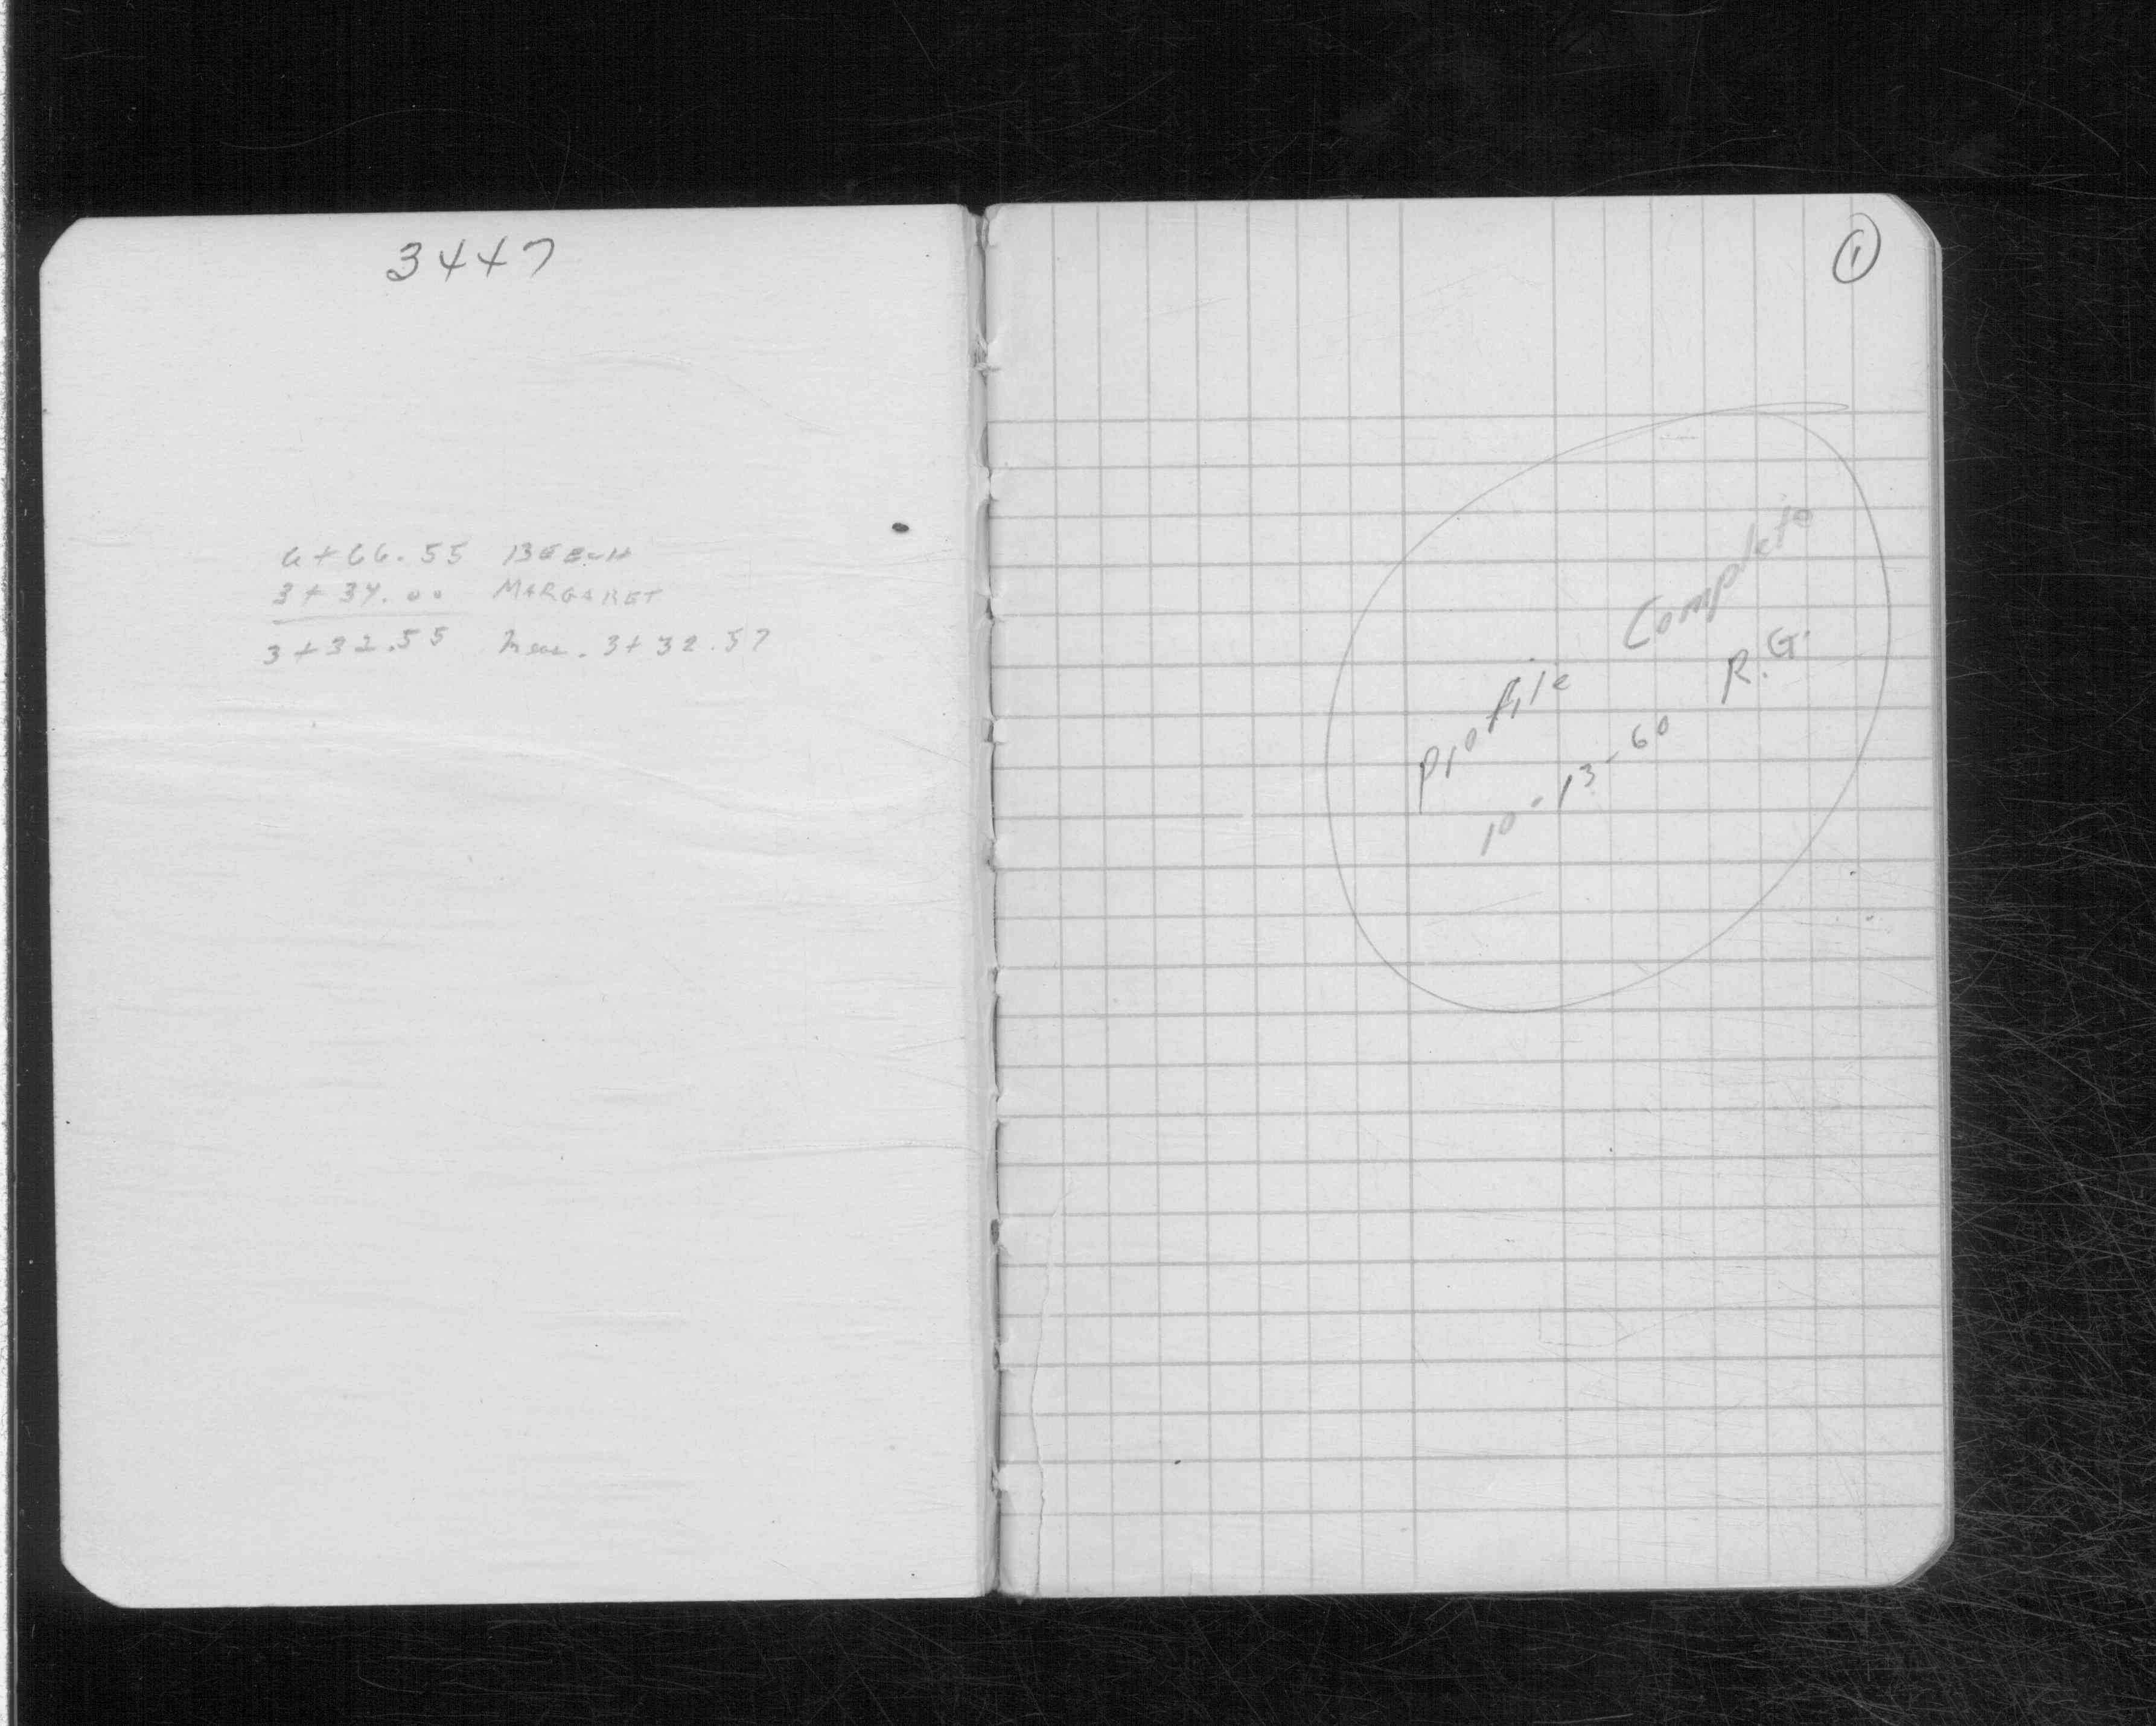 3447
6+66.55 BEECH
3+34.00 MARGARET
3+32.55 Meas. 3+32.57
1
Profile Complete
10-13-60 R.G.